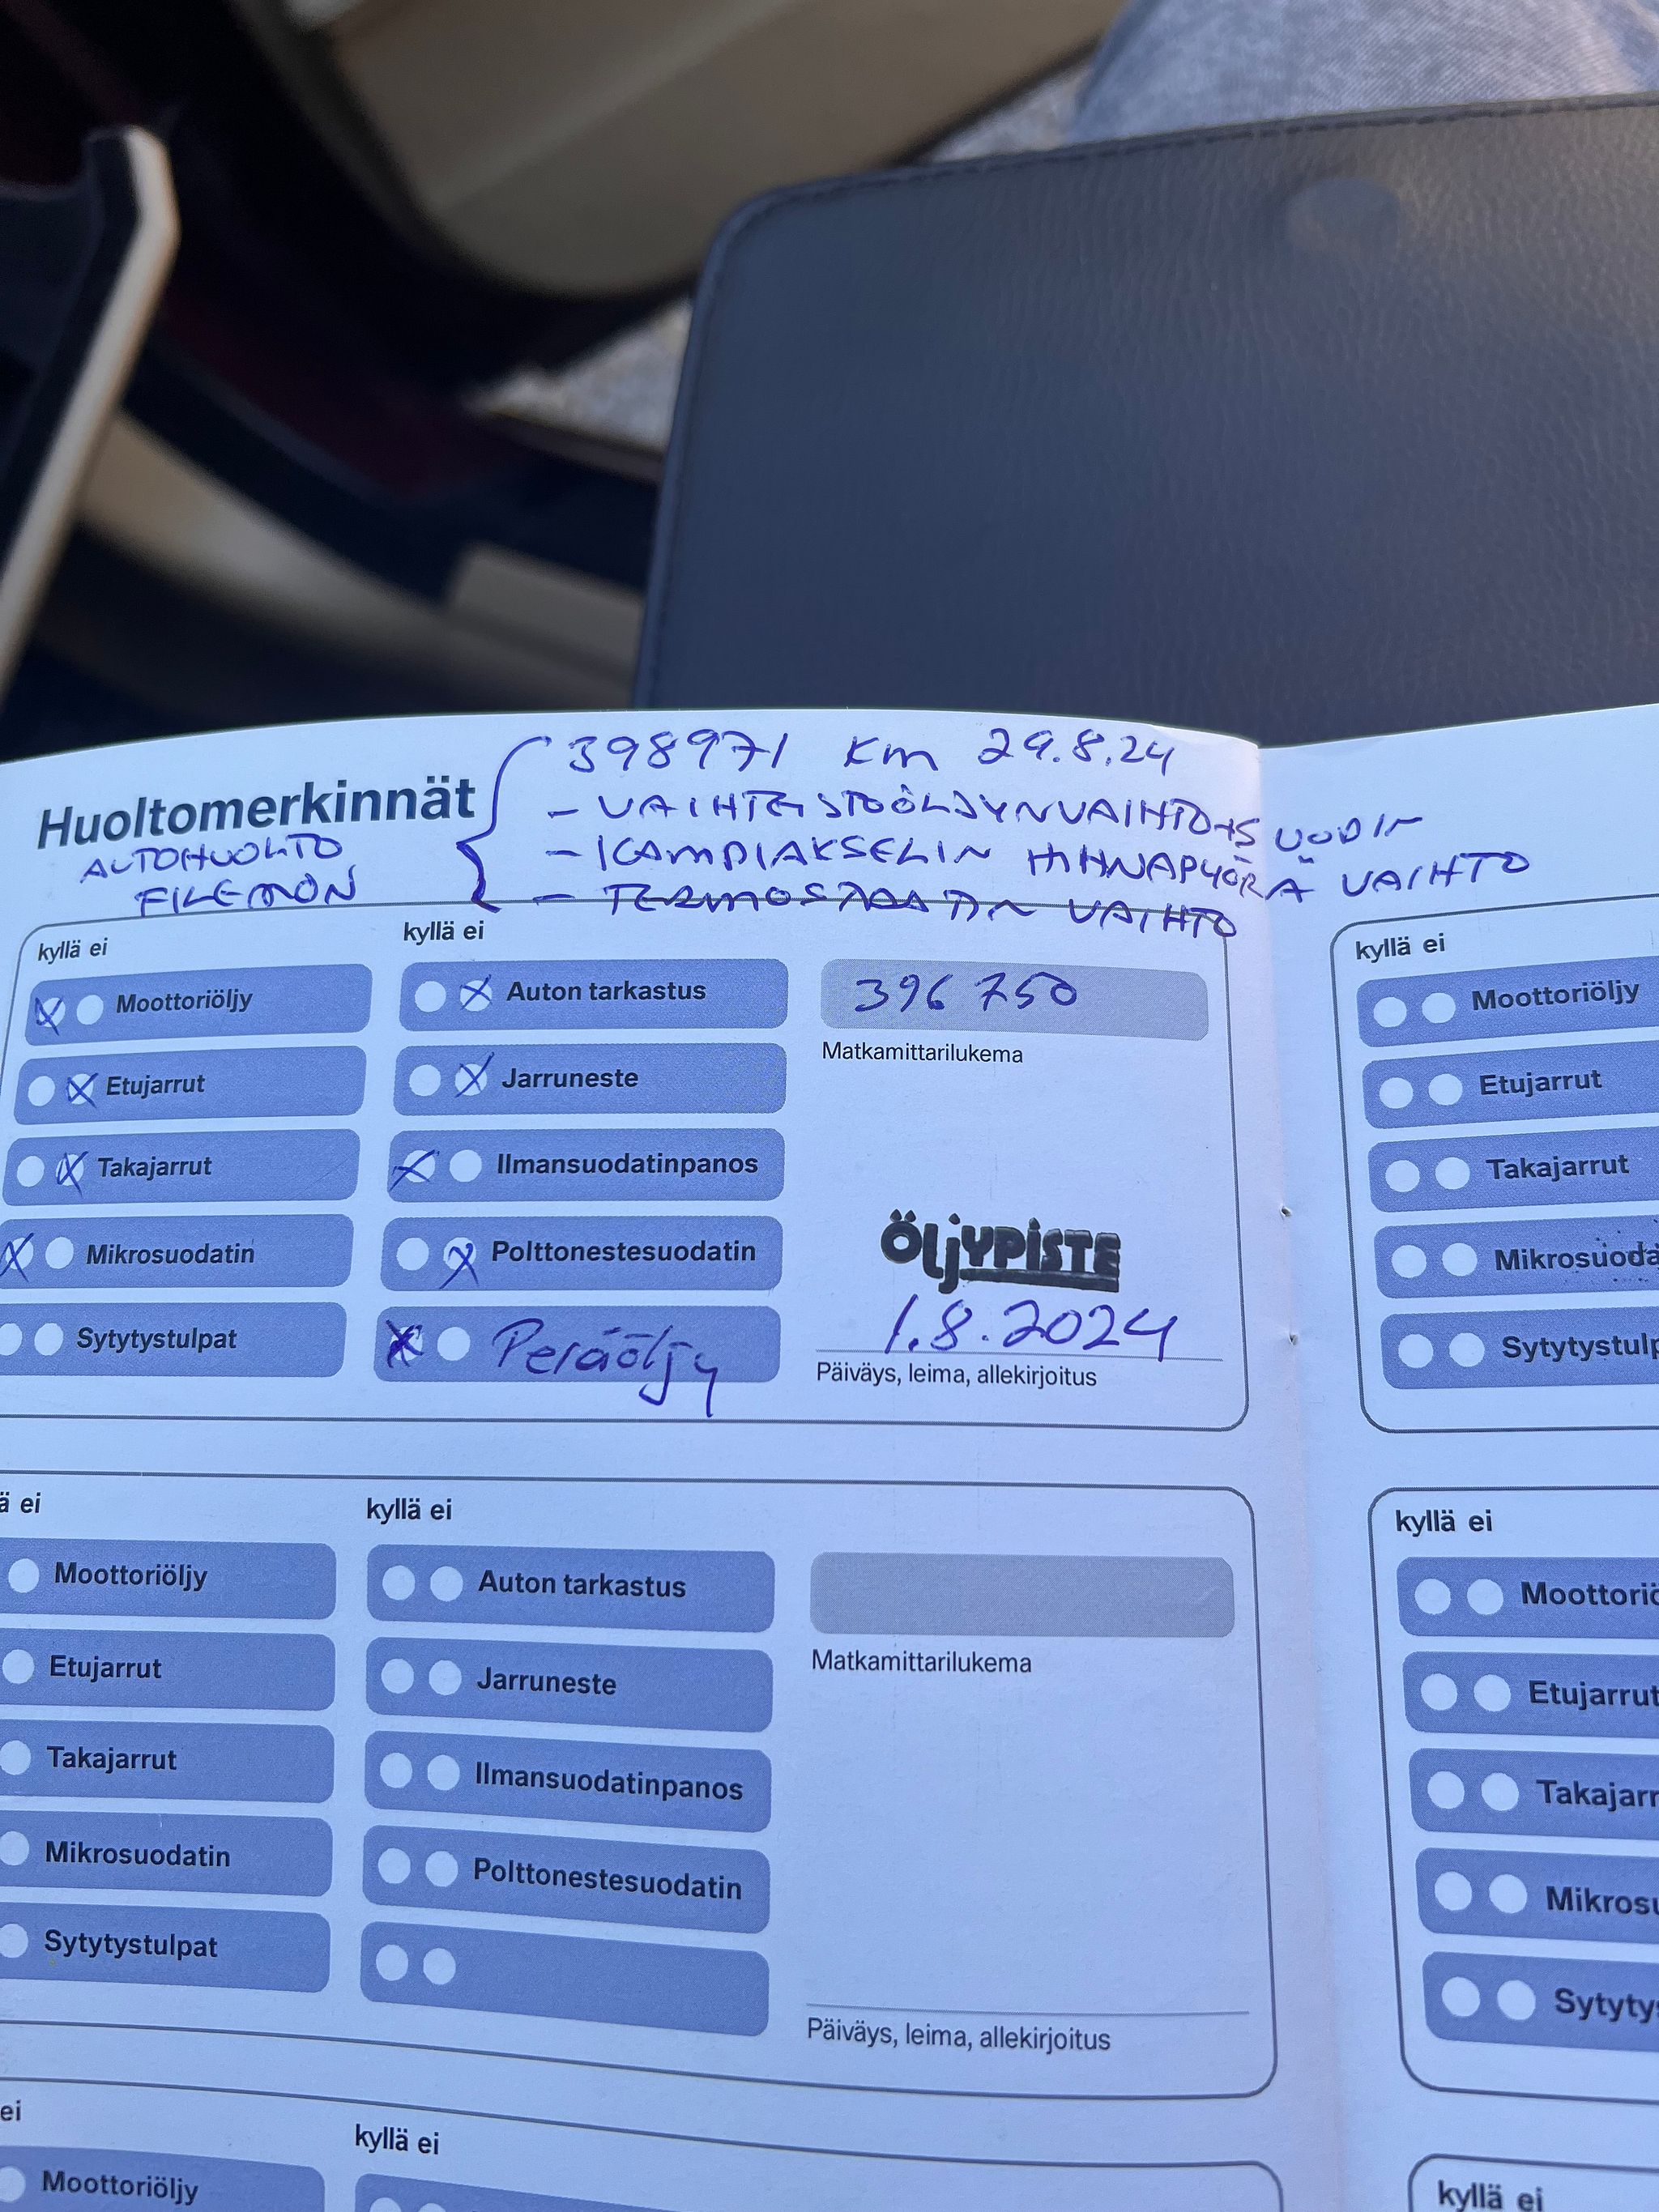 398971 Km 29.8.24
Huoltomerkinnät
- VAIHTEISTOÖLJYNVAIHTO+SUODIN
AUTOHUOLTO
- KAMPIAKSELIN HIHNAPYÖRÄ VAIHTO
FILEMON
- TERMOSTAATIN VAIHTO
kyllä ei
kyllä ei
Moottoriöljy
Auton tarkastus
396 750
Etujarrut
Jarruneste
Matkamittarilukema
Takajarrut
Ilmansuodatinpanos
Mikrosuodatin
Polttonestesuodatin
ÖLJYPISTE
Sytytystulpat
Peräöljy
1.8.2024
Päiväys, leima, allekirjoitus
kyllä ei
Moottoriöljy
Etujarrut
Takajarrut
Mikrosuoda
Sytytystulp
ä ei
kyllä ei
Moottoriöljy
Auton tarkastus
Etujarrut
Jarruneste
Matkamittarilukema
Takajarrut
Ilmansuodatinpanos
Mikrosuodatin
Polttonestesuodatin
Sytytystulpat
Päiväys, leima, allekirjoitus
kyllä ei
Moottoriö
Etujarrut
Takajarr
Mikrosu
Sytyty
ei
kyllä ei
Moottoriöljy
kyllä ei